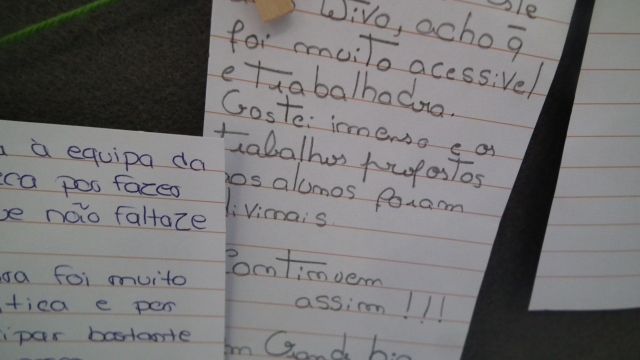 acho q̄
foi muito acessível
e trabalhadora.
Gostei imenso e os
trabalhos propostos
aos alunos foram
divinais.
Continuem
assim !!!
à equipa da
por fazer
não
foi muito
tica e
ipar bastante